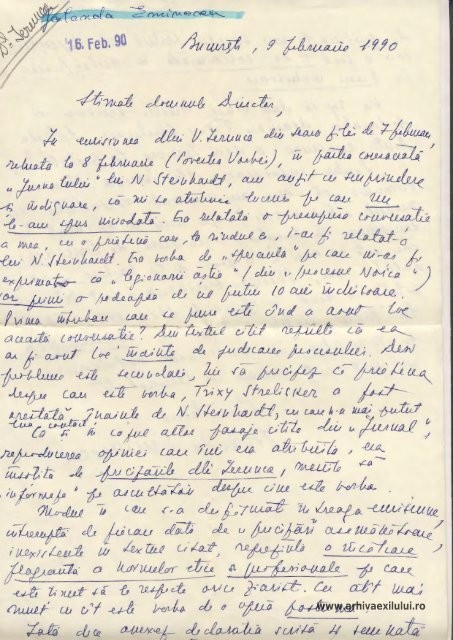 Yolanda Eminescu
D. Ierunca
16. Feb. 90
București, 9 februarie 1990
Stimate domnule Director,
În emisiunea dlui V. Ierunca din seara zilei de 7 februarie,
reluată la 8 februarie (Povestea Vorbei), în partea consacrată
„Jurnalului" lui N. Steinhardt, am auzit cu surprindere
și indignare, că mi se atribuie lucruri pe care nu
le-am spus niciodată. Era relatată o presupusă conversație
a mea, cu o prietenă care, la rîndul ei, i-ar fi relatat-o
lui N. Steinhardt. Era vorba de „speranța" pe care mi-aș fi
exprimat-o că „legionarii ăștia" (din „procesul Noica")
vor primi o pedeapsă de cel puțin 10 ani închisoare.
Prima întrebare care se pune este cînd a avut loc
această conversație? Din textul citat rezultă că ea
ar fi avut loc înainte de judecarea procesului. Deși
problema este secundară, țin să precizez că prietena
despre care este vorba, Trixy Strelisker a fost
arestată înainte de N. Steinhardt, cu care n-a mai putut
lua contact.
Ca și în cazul altor pasaje citite din „Jurnal",
reproducerea opiniei care îmi era atribuită, era
însoțită de precizările dlui Ierunca, menite să
„informeze" pe ascultători despre cine este vorba.
Modul în care s-a desfășurat întreaga emisiune,
întreruptă de fiecare dată de „precizări" asemănătoare,
inexistente în textul citat, reprezintă o încălcare
flagrantă a normelor etice și profesionale pe care
este ținut să le respecte orice ziarist. Cu atît mai
mult cu cît este vorba de o operă postumă.
Iată de ce anexez declarația scrisă și semnată
www.arhivaexilului.ro